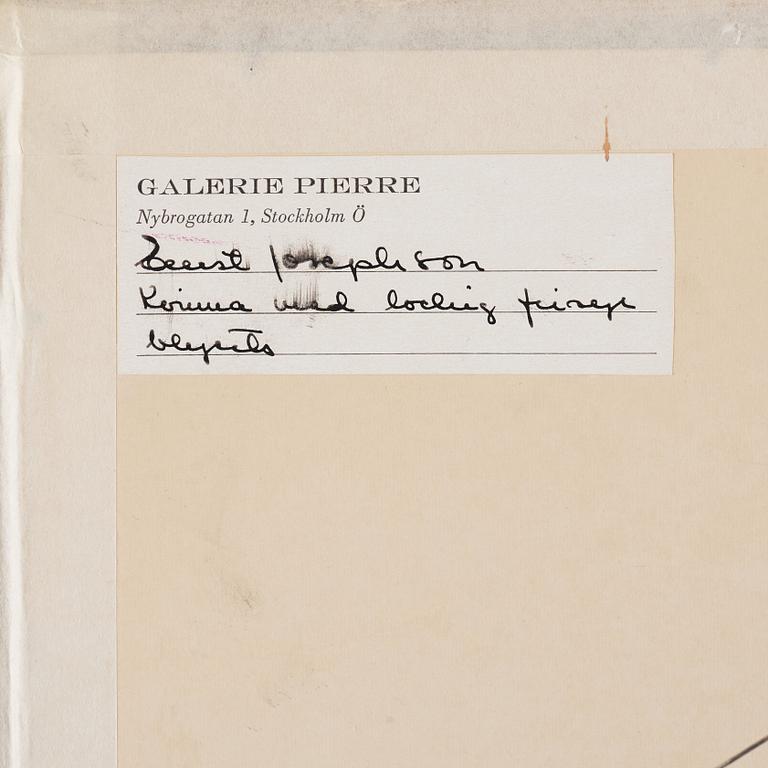 GALERIE PIERRE
Nybrogatan 1, Stockholm Ö
Ernst Josephson
Kvinna med lockig frisyr
blyerts